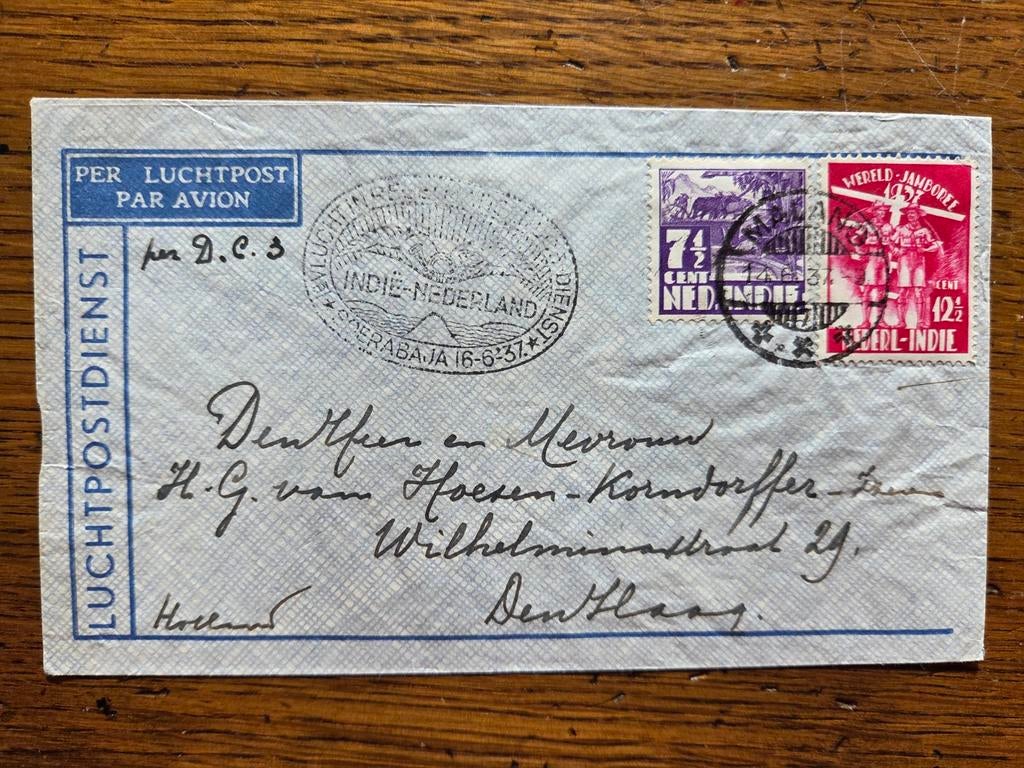 PER LUCHTPOST
PAR AVION
LUCHTPOSTDIENST
per D.C. 3
INDIË-NEDERLAND
DIENST
SOERABAJA 16-6-37.
7½
CENT
NED. INDIE
MALANG
14.6.37.
WERELD-JAMBOREE
1937
CENT
12½
NEDERL-INDIE
Den Heer en Mevrouw
H. G. van Hoesen-Korndorffer-
Wilhelminastraat 29.
Den Haag.
Holland